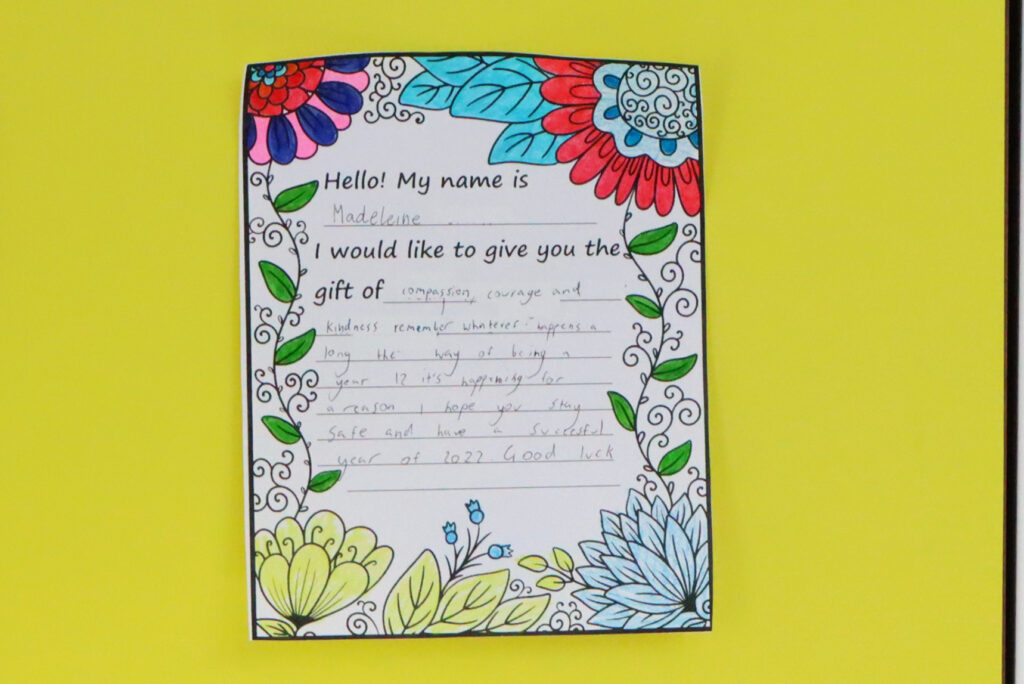 Hello! My name is
Madeleine
I would like to give you the
gift of compassion, courage and
kindness remember whatever happens a
long the way of being a
year 12 it's happening for
a reason I hope you stay
safe and have a succesful
year of 2022. Good luck